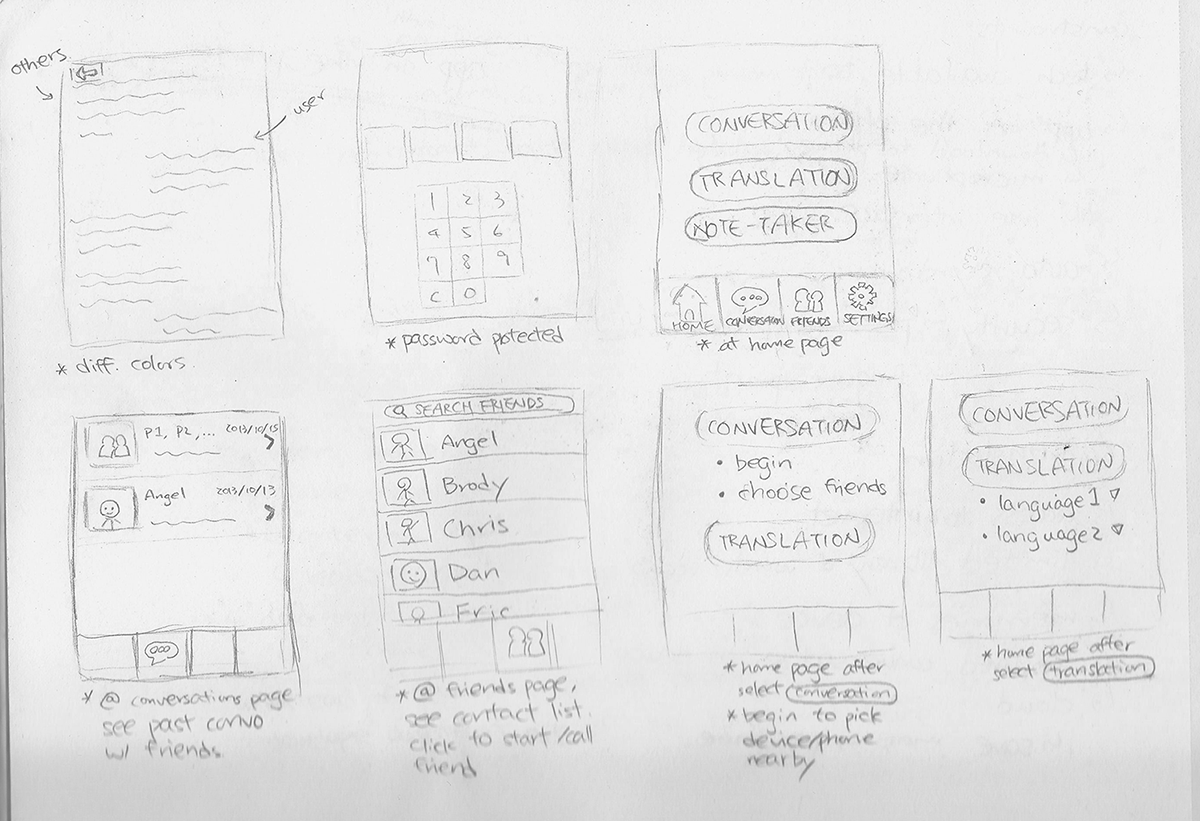 others
user
* diff. colors.
1 2 3
4 5 6
7 8 9
C 0
* password potected
CONVERSATION
TRANSLATION
NOTE-TAKER
HOME CONVERSATION FRIENDS SETTINGS
* at home page
P1, P2, ... 2013/10/15
Angel 2013/10/13
* @ conversations page
see past convo
w/ friends.
SEARCH FRIENDS
Angel
Brody
Chris
Dan
Eric
* @ friends page,
see contact list.
click to start/call
friend
CONVERSATION
• begin
• choose friends
TRANSLATION
* home page after
select conversation
* begin to pick
device/phone
nearby
CONVERSATION
TRANSLATION
• language1
• language2
* home page after
select translation